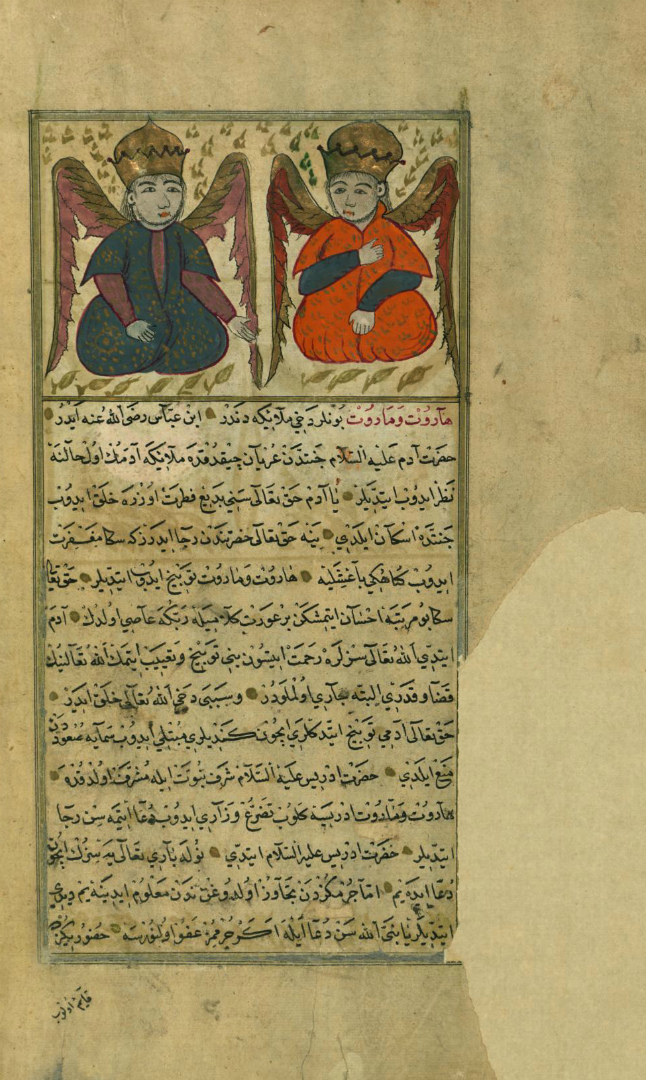 هاروت وماروت بونلر دخی ملائیکه دندر ابن عباس رضی الله عنه ایدر
حضرت آدم علیه السلام جنتدن عریان چیقدقده ملائیکه آدمك اول حالنه
نظر ایدوب ایتدیلر یا آدم حق تعالی سنی بدیع فطرت اوزره خلق ایدوب
جنتده اسکان ایلدی ینه حق تعالی حضرتندن رجا ایدرز که سکا مغفرت
ایدوب کناهکی باغشلیه هاروت وماروت توبیخ ایدوب ایتدیلر حق تعالی
سکا بو مرتبه احسان ایتمشکن بر عورت کلامیله ربکه عاصی اولدك آدم
ایتدی الله تعالی سزلره رحمت ایتسون بنی توبیخ وتعییب ایتمك الله تعالینك
قضا وقدری البته جاری اولملودر وسببی دخی الله تعالی خلق ایدر
حق تعالی آدمی توبیخ ایتدکلری ایچون کندیلری مبتلی ایدوب سمایه صعوددن
منع ایلدی حضرت ادریس علیه السلام شرف نبوت ایله مشرف اولدقده
هاروت وماروت ادریسه کلوب تضرع وزاری ایدوب دعا ایتمه سن رجا
ایتدیلر حضرت ادریس علیه السلام ایتدی بوله باری تعالی یه سزك ایچون
دعا ایده یم اما جرمکزدن تجاوز اولدوغن ندن معلوم ایدینه یم دیدی
ایتدیلر یا نبی الله سن دعا ایله اکر جرممز عفو اولنورسه حضورکزه